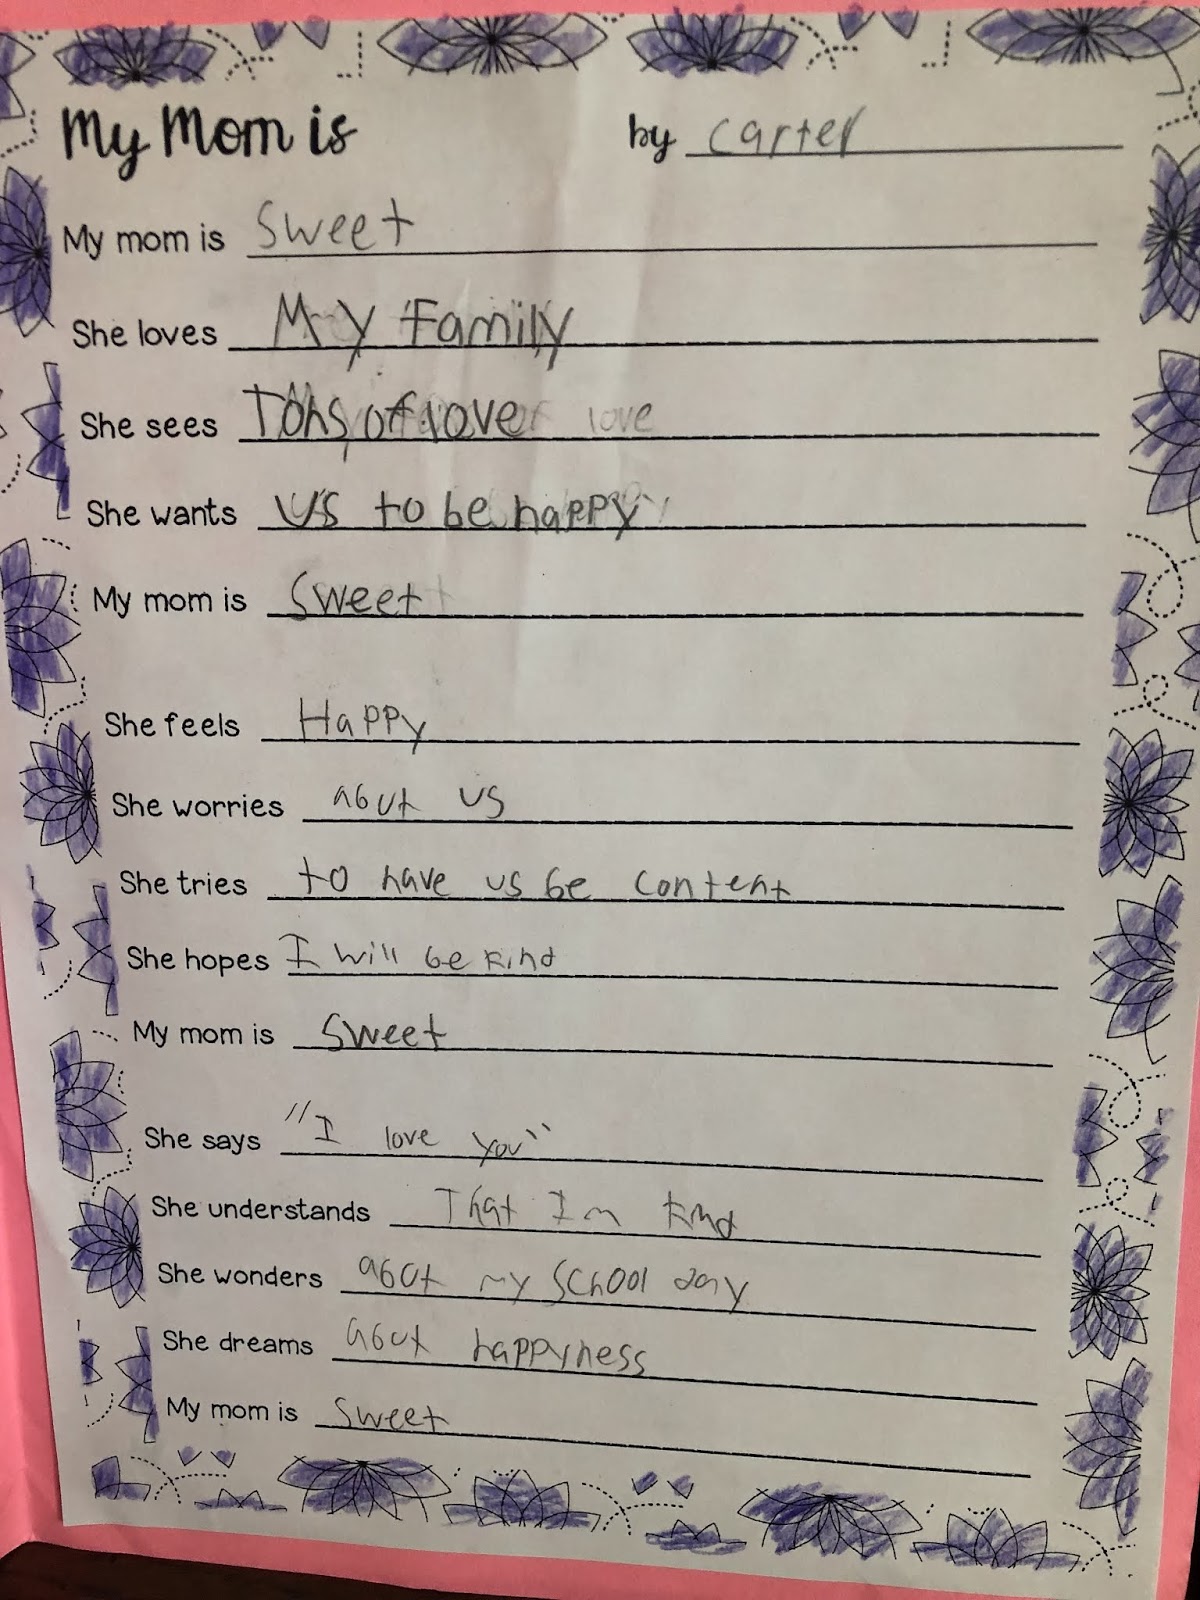 My Mom is by carter
My mom is sweet
She loves My Family
She sees Tons of love love
She wants Us to be happy
My mom is Sweet
She feels Happy
She worries about us
She tries to have us be content
She hopes I will be kind
My mom is Sweet
She says "I love you"
She understands That Im kind
She wonders about my school day
She dreams about happyness
My mom is sweet